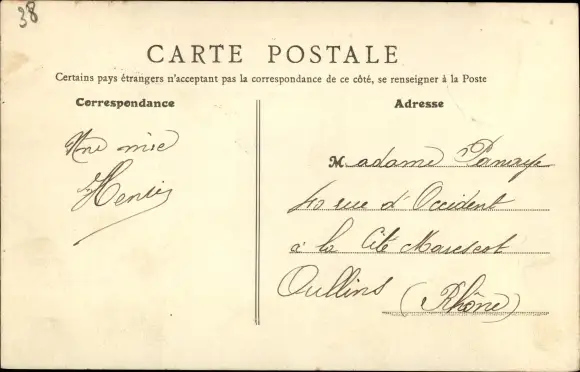 38
CARTE POSTALE
Certains pays étrangers n'acceptant pas la correspondance de ce côté, se renseigner à la Poste
Correspondance
Adresse
Une mise
Henri
Madame
40 rue d'Occident
à la Cité Marescot
Oullins (Rhône)